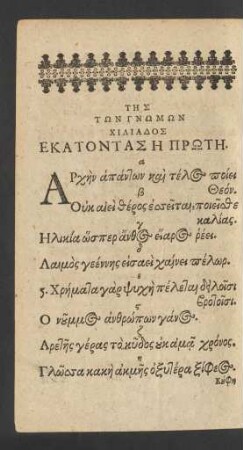 ΤΗΣ
ΤΩΝ ΓΝΩΜΩΝ
ΧΙΛΙΑΔΟΣ
ΕΚΑΤΟΝΤΑΣ Η ΠΡΩΤΗ.
α
ΑΡχὴν ἁπάντων καὶ τέλος ποίει
β Θεόν.
Οὐκ αἰεὶ θέρος ἐσσεῖται, ποιεῖσθε
γ καλίας.
Ηλικία ὥσπερ ἄνθος εἴαρος ῥέει.
Λαιμὸς γεέννης εἰσαεὶ χαίνει πέλωρ.
ς. Χρήματα γὰρ ψυχὴ πέλεται δειλοῖσι
βροτοῖσι.
Ο νοῦμμος ἀνθρώπων γάνος.
Αρετῆς γέρας τὸ κῦδος οὐκ ἀμᾷ χρόνος.
Γλῶσσα κακὴ ἀκμῆς ὀξυτέρα ξίφεος.